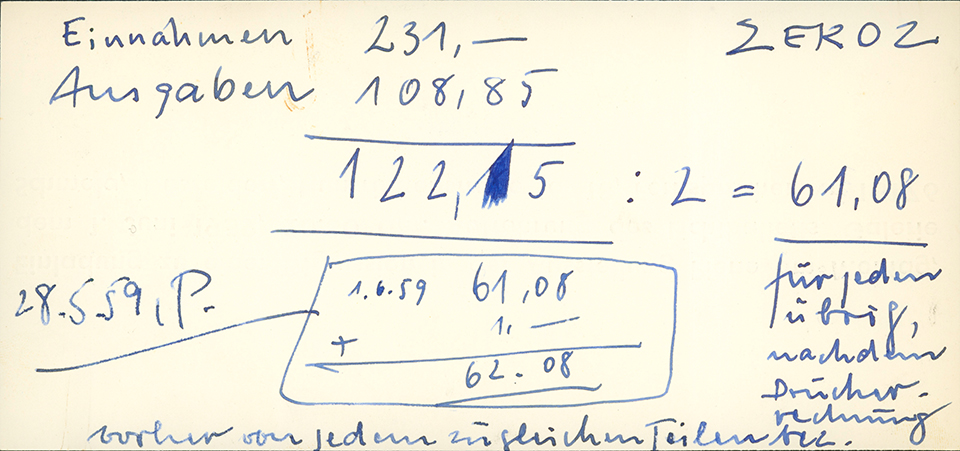 Einnahmen 231,— ZERO 2
Ausgaben 108,85
122,15 : 2 = 61,08
28.5.59, P.
1.6.59 61,08
+ 1,—
62.08
für jeden
übrig,
nachdem
Drucker-
rechnung
vorher von jedem zu gleichen Teilen bez.